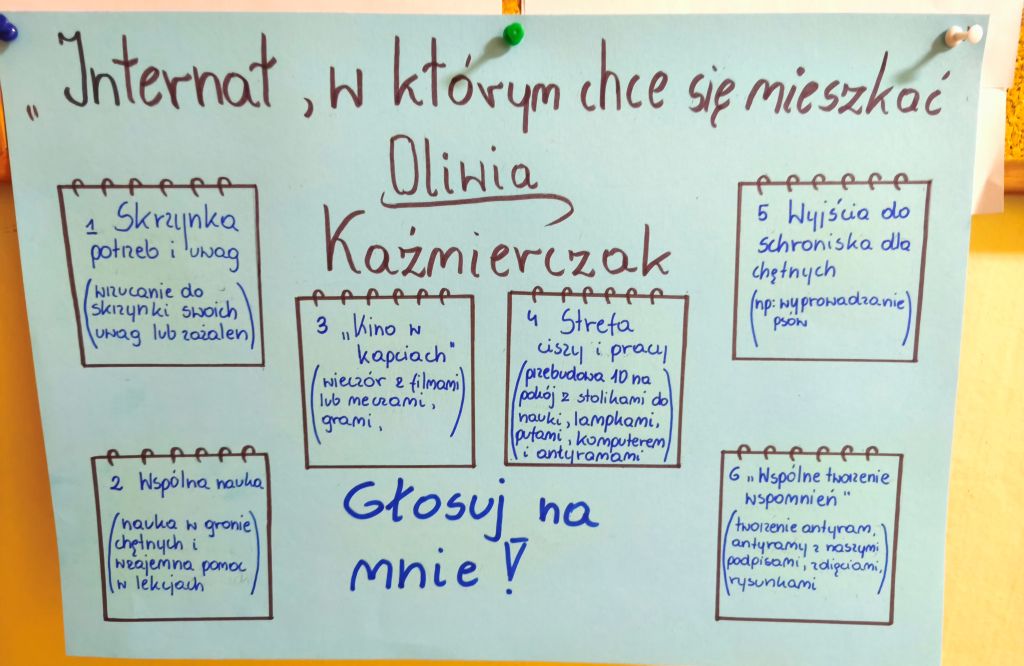 „Internat, w którym chce się mieszkać
Oliwia
Kaźmierczak
1 Skrzynka
potrzeb i uwag
(wrzucanie do
skrzynki swoich
uwag lub zażaleń)
2 Wspólna nauka
(nauka w gronie
chętnych i
wzajemna pomoc
w lekcjach)
3 „Kino w
kapciach"
(wieczór z filmami
lub meczami,
grami,)
4 Strefa
ciszy i pracy
(przebudowa 10 na
pokój z stolikami do
nauki, lampkami,
pufami, komputerem
i antyramami)
5 Wyjścia do
schroniska dla
chętnych
(np: wyprowadzanie
psów)
6 „Wspólne tworzenie
wspomnień"
(tworzenie antyram,
antyramy z naszymi
podpisami, zdięciami,
rysunkami)
Głosuj na
mnie!